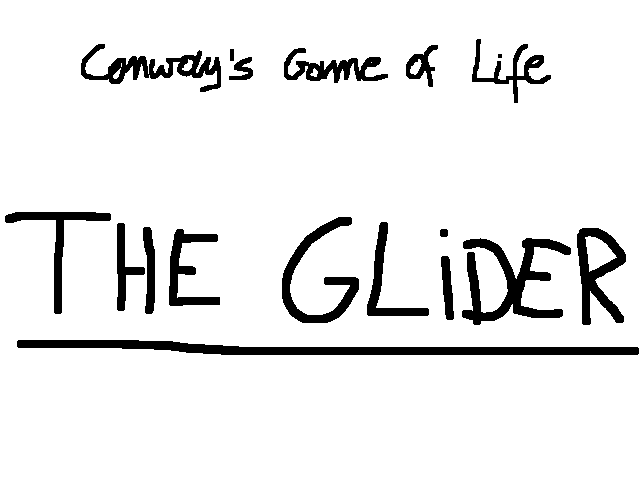 Conway's Game of Life
THE GLiDER